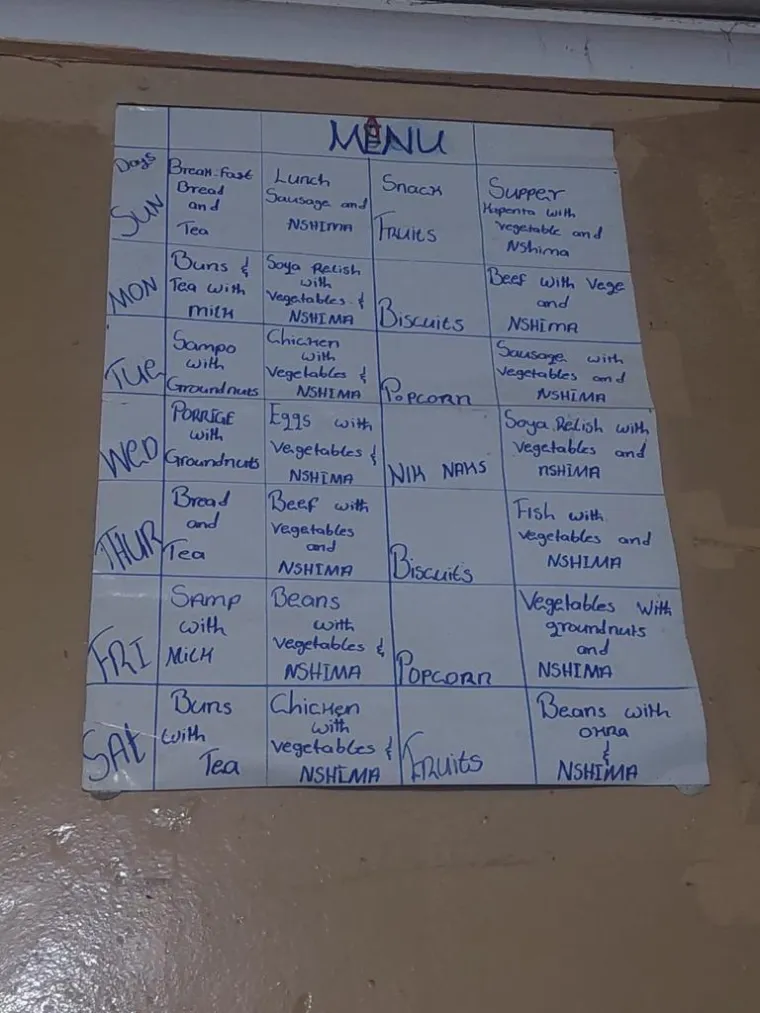 MENU
Days
Break-fast
Lunch
Snack
Supper
SUN
Bread
and
Tea
Sausage and
NSHIMA
FRuits
Kapenta with
vegetable and
NShima
MON
Buns &
Tea with
milk
Soya Relish
with
Vegetables &
NSHIMA
Biscuits
Beef with Vege
and
NSHIMA
TUE
Sampo
with
Groundnuts
Chicken
with
Vegetables &
NSHIMA
POPCORN
Sausage with
Vegetables and
NSHIMA
WED
PORRIGE
with
Groundnuts
Eggs with
Vegetables &
NSHIMA
NIK NAKS
Soya Relish with
Vegetables and
nSHIMA
THUR
Bread
and
Tea
Beef with
Vegetables
and
NSHIMA
Biscuits
Fish with
vegetables and
NSHIMA
FRI
SAMP
with
Milk
Beans
with
Vegetables &
NSHIMA
POPCORN
Vegetables with
groundnuts
and
NSHIMA
SAt
Buns
with
Tea
Chicken
with
vegetables &
NSHIMA
FRuits
Beans with
OKRA
&
NSHIMA